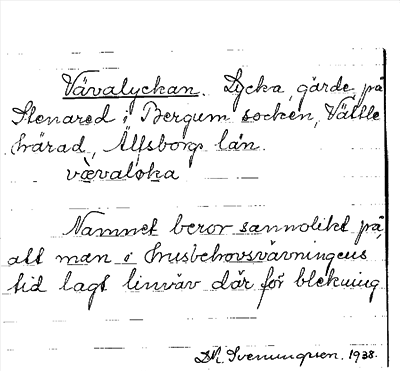 Vävalyckan. Lycka, gärde, på
Stenared i Bergum socken, Vättle
härad, Älfsborgs län.
vævalòka
Namnet beror sannolikt på,
att man i husbehovsvävningens
tid lagt linväv där för blekning
Svenungsson. 1938.